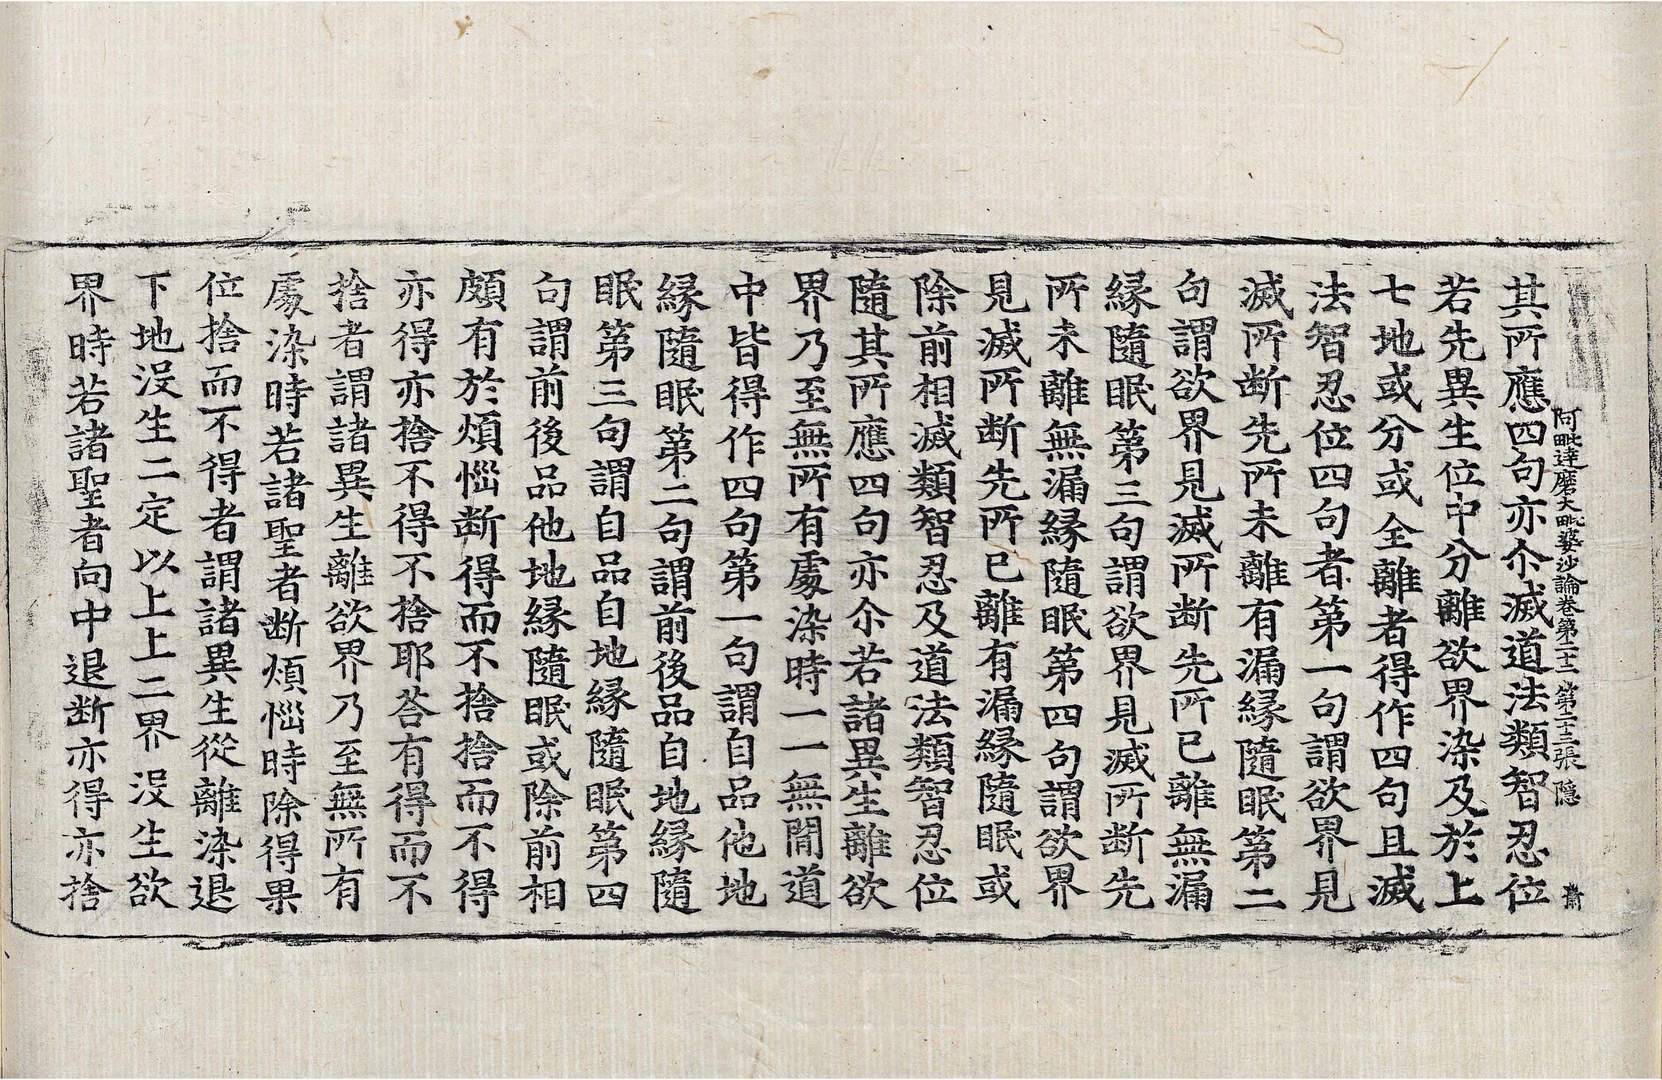 阿毗達磨大毗婆沙論卷第二十二 第二十三張 隱
其所應四句亦尒滅道法類智忍位
若先異生位中分離欲界染及於上
七地或分或全離者得作四句且滅
法智忍位四句者第一句謂欲界見
滅所断先所未離有漏緣隨眠第二
句謂欲界見滅所断先所已離無漏
緣隨眠第三句謂欲界見滅所断先
所未離無漏緣隨眠第四句謂欲界
見滅所断先所已離有漏緣隨眠或
除前相滅類智忍及道法類智忍位
隨其所應四句亦尒若諸異生離欲
界乃至無所有處染時一一無間道
中皆得作四句第一句謂自品他地
緣隨眠第二句謂前後品自地緣隨
眠第三句謂自品自地緣隨眠第四
句謂前後品他地緣隨眠或除前相
頗有於煩惱断得而不捨捨而不得
亦得亦捨不得不捨耶荅有得而不
捨者謂諸異生離欲界乃至無所有
處染時若諸聖者断煩惱時除得果
位捨而不得者謂諸異生從離染退
下地沒生二定以上上二界沒生欲
界時若諸聖者向中退断亦得亦捨